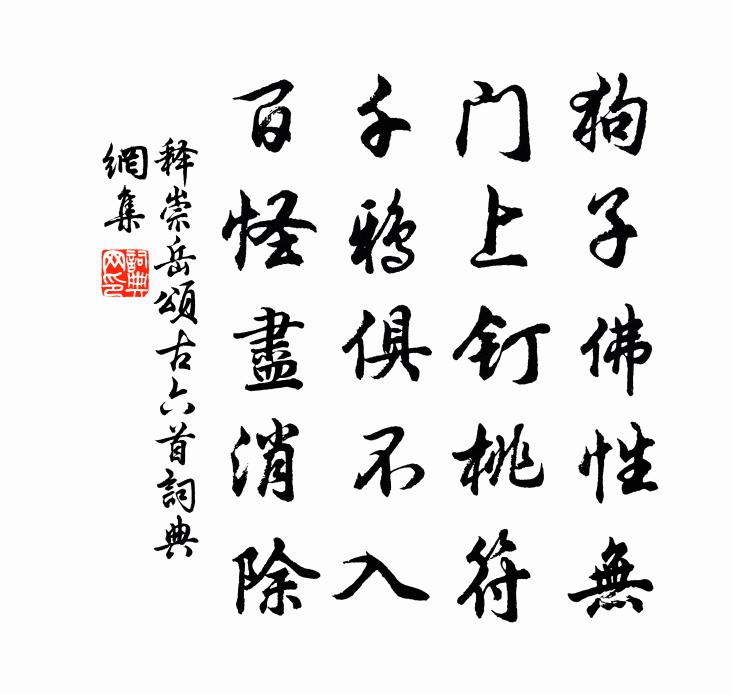 狗子佛性無
門上釘桃符
千鴉俱不入
百怪盡消除
释崇岳頌古六首詞典
網集
詞典网印